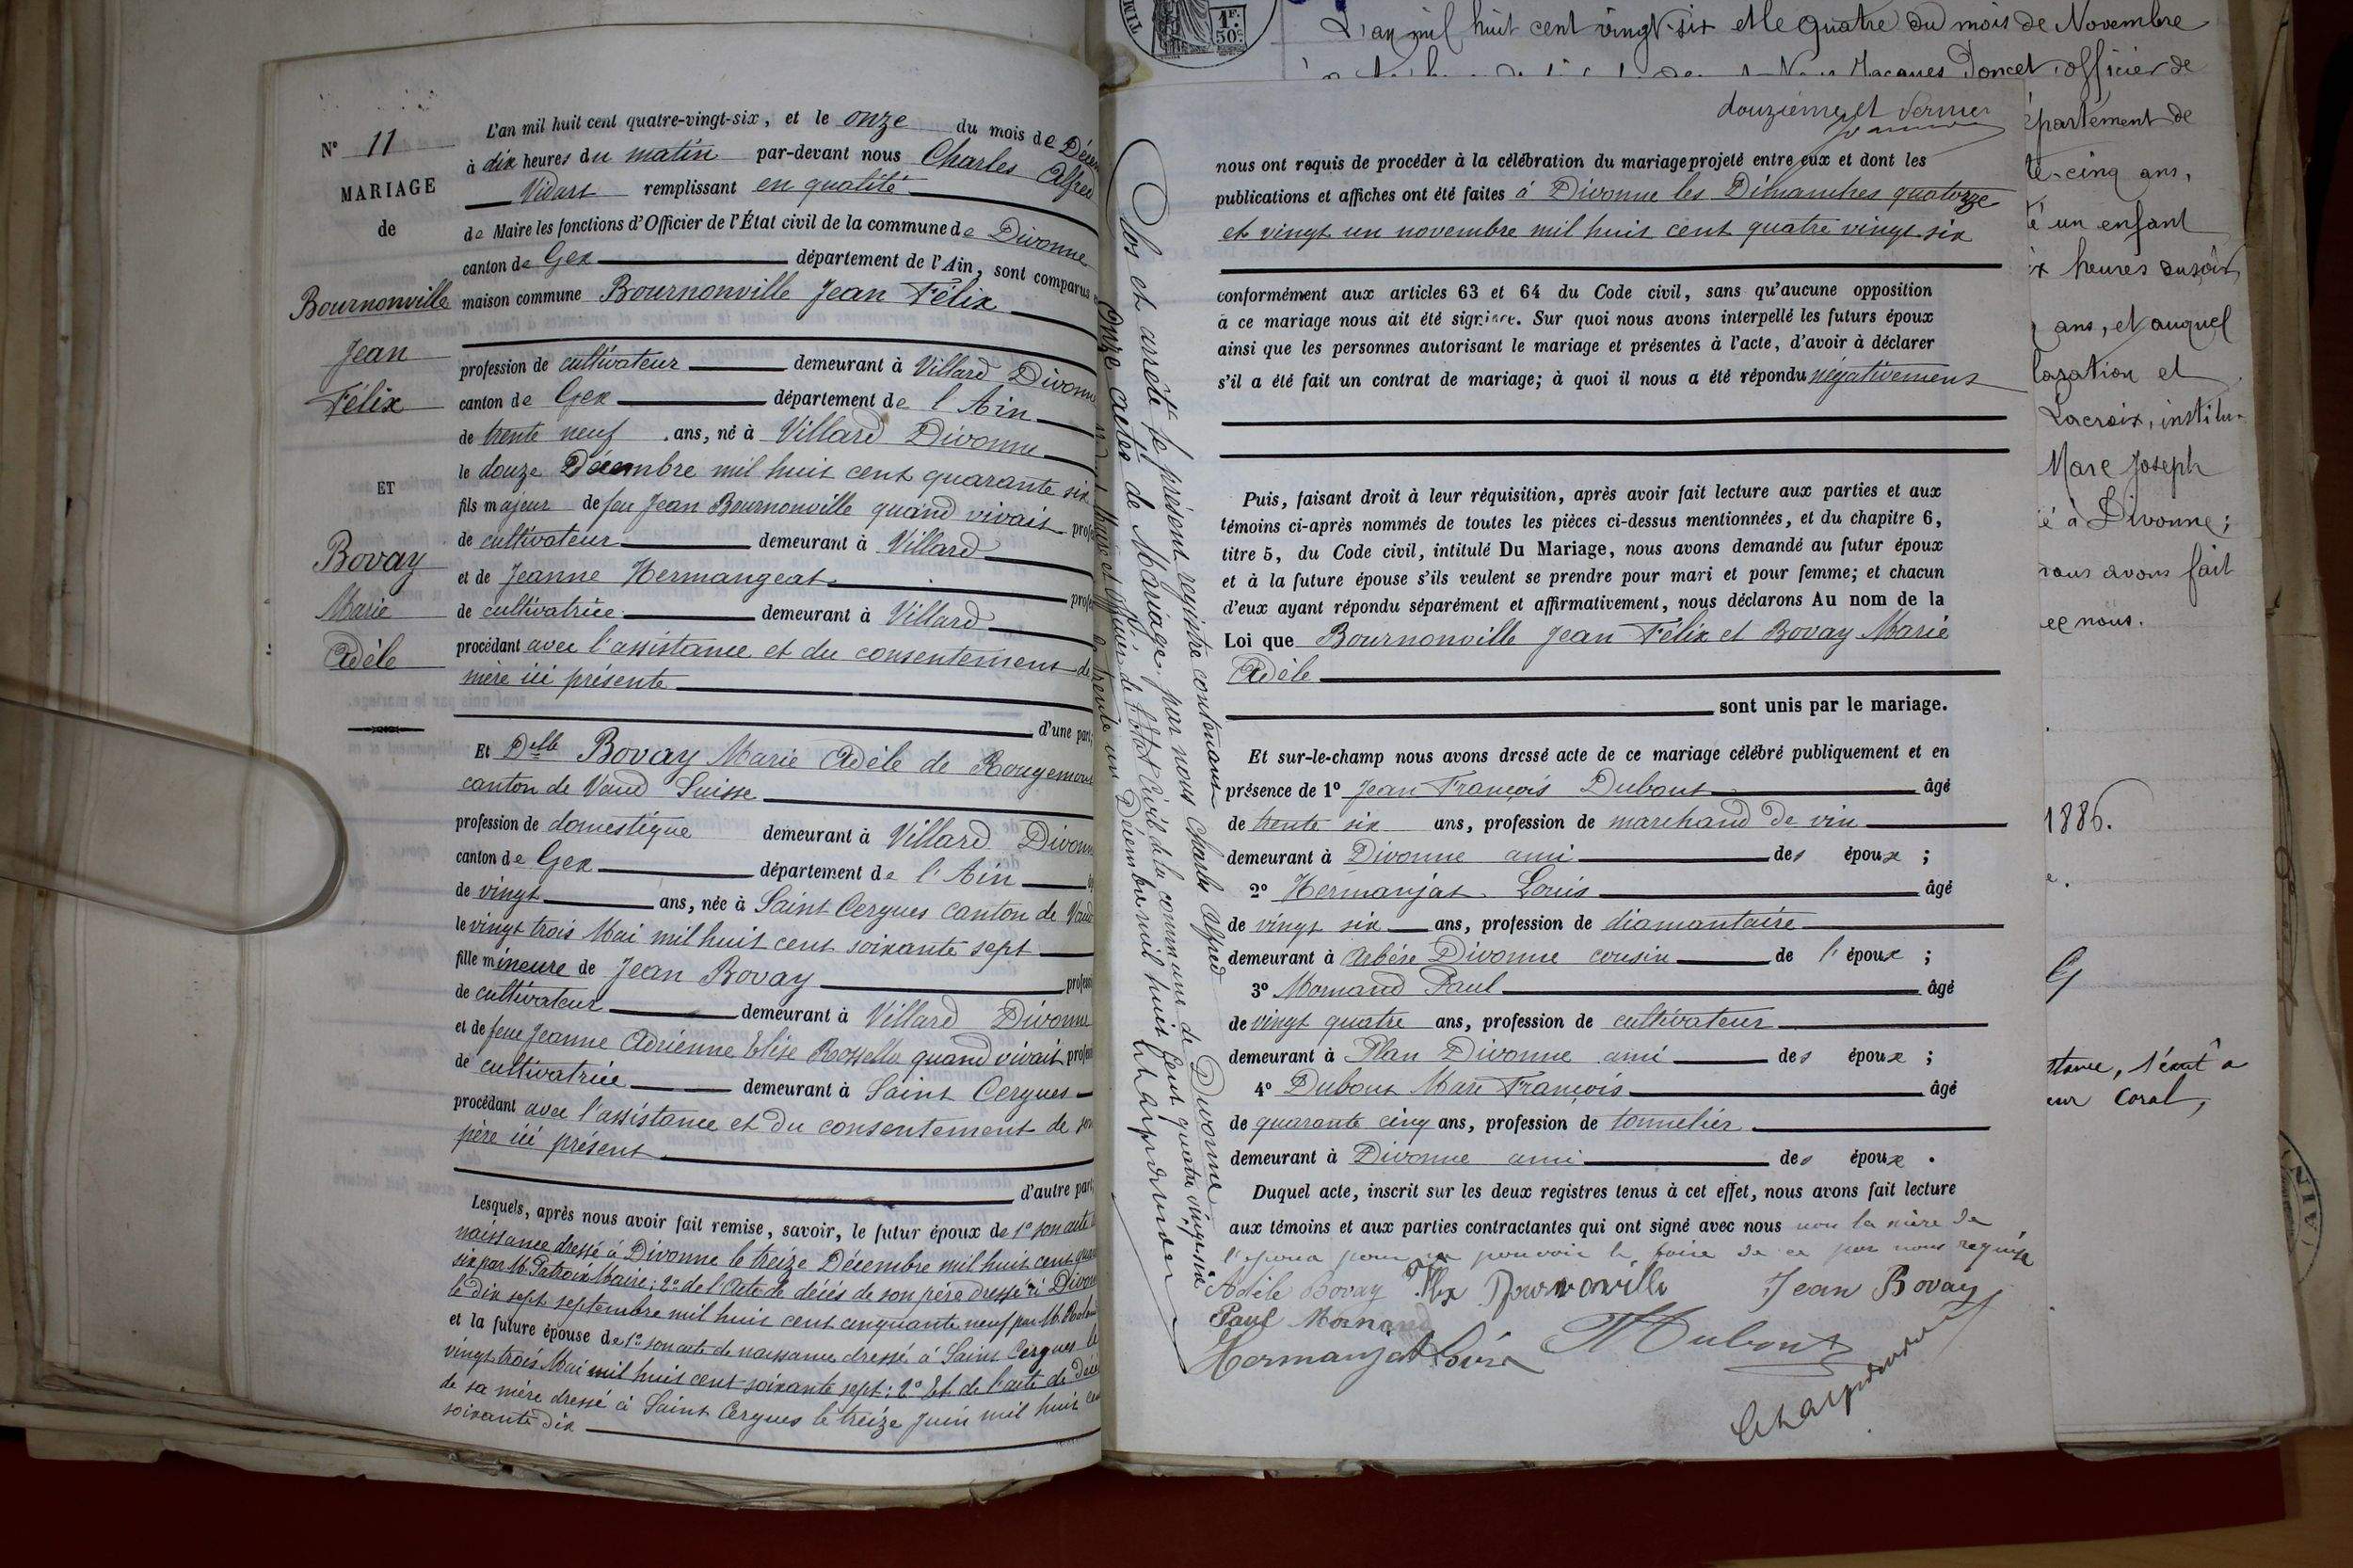 N° 11
MARIAGE
de
Bournonville
Jean
Félix
ET
Bovay
Marie
Adèle
L'an mil huit cent quatre-vingt-six, et le onze du mois de
à dix heures du matin par-devant nous Charles Alfred
Vidart remplissant en qualité
de Maire les fonctions d'Officier de l'État civil de la commune de Divonne
canton de Gex département de l'Ain, sont comparus
maison commune Bournonville Jean Félix
profession de cultivateur demeurant à Villard Divonne
canton de Gex département de l'Ain
de trente neuf ans, né à Villard Divonne
le douze Décembre mil huit cent quarante six
fils majeur de feu Jean Bournonville quand vivait
de cultivateur demeurant à Villard
et de Jeanne Hermangeat
de cultivatrice demeurant à Villard
procédant avec l'assistance et du consentement de
mère ici présente
d'une part,
Et Delle Bovay Marie Adèle de Rougemont
canton de Vaud Suisse
profession de domestique demeurant à Villard Divonne
canton de Gex département de l'Ain
de vingt ans, née à Saint Cergues canton de Vaud
le vingt trois Mai mil huit cent soixante sept
fille mineure de Jean Bovay
de cultivateur demeurant à Villard Divonne
et de feue Jeanne Adrienne Elise Rosselle quand vivait
de cultivatrice demeurant à Saint Cergues
procédant avec l'assistance et du consentement de son
père ici présent
d'autre part,
Lesquels, après nous avoir fait remise, savoir, le futur époux de 1° son acte
naissance dressé à Divonne le treize Décembre mil huit cent
six par M. Patroix Maire; 2° de l'Acte de décès de son père dressé à
le dix sept septembre mil huit cent cinquante neuf par M.
et la future épouse de 1° son acte de naissance dressé à Saint Cergues le
vingt trois Mai mil huit cent soixante sept; 2° Et de l'acte de
de sa mère dressé à Saint Cergues le treize juin mil huit
soixante dix
Clos et arrêté le présent registre contenant
Onze actes de Mariage par nous Charles Alfred
Maire et officier de l'état civil de la commune de Divonne
le trente un Décembre mil huit cent quatre vingt six
1F.
50c
L'an mil huit cent vingt-six et le quatre du mois de Novembre
Jacques Poncet, officier de
douzième et dernier
nous ont requis de procéder à la célébration du mariage projeté entre eux et dont les
publications et affiches ont été faites à Divonne les Dimanches quatorze
et vingt un novembre mil huit cent quatre vingt six
conformément aux articles 63 et 64 du Code civil, sans qu'aucune opposition
à ce mariage nous ait été signifiée. Sur quoi nous avons interpellé les futurs époux
ainsi que les personnes autorisant le mariage et présentes à l'acte, d'avoir à déclarer
s'il a été fait un contrat de mariage; à quoi il nous a été répondu négativement
Puis, faisant droit à leur réquisition, après avoir fait lecture aux parties et aux
témoins ci-après nommés de toutes les pièces ci-dessus mentionnées, et du chapitre 6,
titre 5, du Code civil, intitulé Du Mariage, nous avons demandé au futur époux
et à la future épouse s'ils veulent se prendre pour mari et pour femme; et chacun
d'eux ayant répondu séparément et affirmativement, nous déclarons Au nom de la
Loi que Bournonville Jean Félix et Bovay Marie
Adèle
sont unis par le mariage.
Et sur-le-champ nous avons dressé acte de ce mariage célébré publiquement et en
présence de 1° Jean François Dubout âgé
de trente six ans, profession de marchand de vin
demeurant à Divonne ami des époux ;
2° Hermanjat Louis âgé
de vingt six ans, profession de diamantaire
demeurant à Arbère Divonne cousin de l'époux ;
3° Mornand Paul âgé
de vingt quatre ans, profession de cultivateur
demeurant à Plan Divonne ami des époux ;
4° Dubout Marc François âgé
de quarante cinq ans, profession de tonnelier
demeurant à Divonne ami des époux .
Duquel acte, inscrit sur les deux registres tenus à cet effet, nous avons fait lecture
aux témoins et aux parties contractantes qui ont signé avec nous non la mère de
l'époux pour ne pouvoir le faire de ce par nous requise
Adèle Bovay Jean Bovay
Paul Mornand
Hermanjat Louis Dubout
épartement de
te-cinq ans,
un enfant
heures du soir,
ans, et auquel
laration et
Lacroix, institu-
Marc Joseph
à Divonne;
nous avons fait
ec nous.
1886.